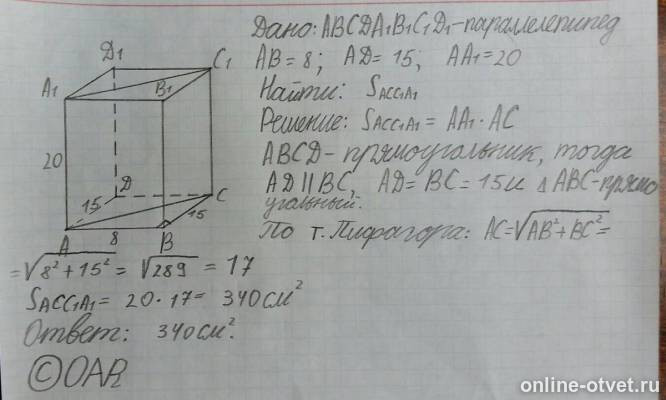 Дано: ABCDA1B1C1D1-параллелепипед
AB = 8; AD = 15; AA1 = 20
Найти: SACC1A1
Решение: SACC1A1 = AA1 · AC
ABCD - прямоугольник, тогда
AD || BC, AD = BC = 15 и Δ ABC - прямо
угольный.
По т. Пифагора: AC = √AB² + BC² =
= √8² + 15² = √289 = 17
SACC1A1 = 20 · 17 = 340 см²
Ответ: 340 см².
©OAR
D1
C1
A1
B1
20
15
D
C
15
A
8
B
online-otvet.ru